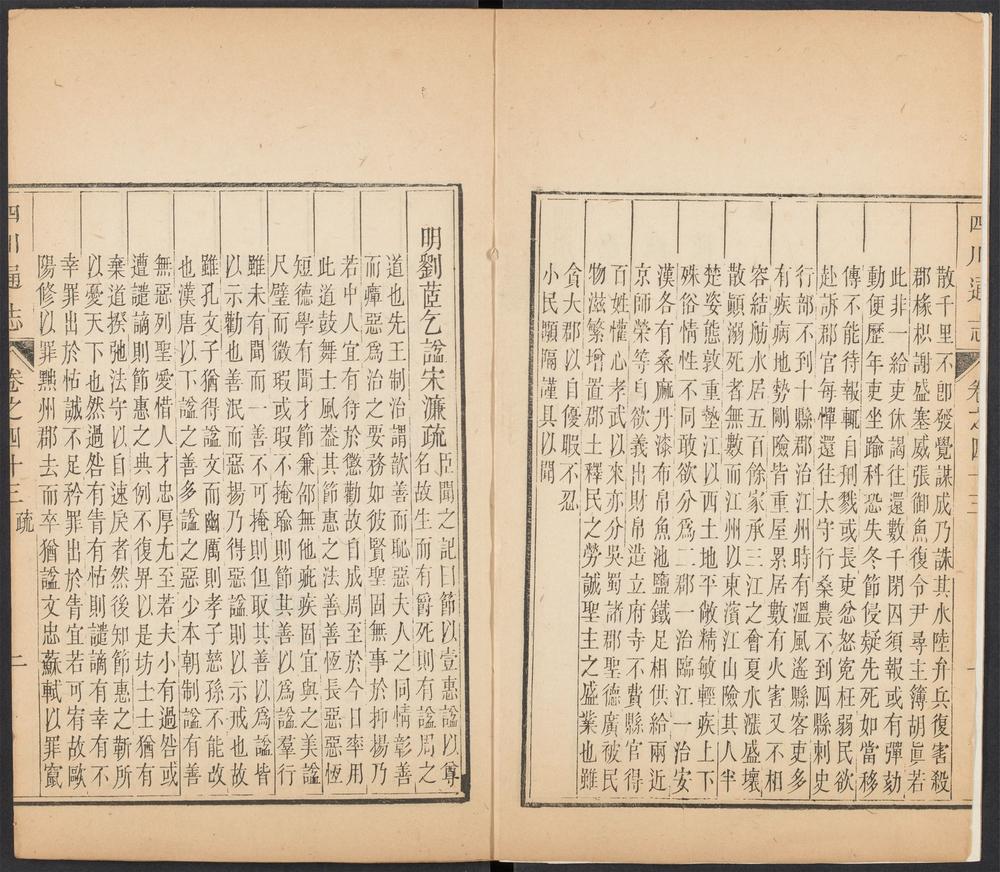 四川通志
卷之四十三
散千里不卽發覺謀成乃誅其水陸弁兵復害殺
郡掾枳謝盛塞威張御魚復令尹尋主簿胡眞若
此非一給吏休謁往還數千閉囚須報或有彈劾
動便歷年吏坐踰科恐失冬節侵疑先死如當移
傳不能待報輒自刑戮或長吏忿怒寃枉弱民欲
赴訴郡官每憚還往太守行桑農不到四縣刺史
行部不到十縣郡治江州時有溫風遙縣客吏多
有疾病地勢剛險皆重屋累居數有火害又不相
容結舫水居五百餘家承三江之會夏水漲盛壞
散顚溺死者無數而江州以東濱江山險其人半
楚姿態敦重墊江以西土地平敞精敏輕疾上下
殊俗情性不同敢欲分爲二郡一治臨江一治安
漢各有桑麻丹漆布帛魚池鹽鐵足相供給兩近
京師榮等自欲義出財帛造立府寺不費縣官得
百姓懽心孝武以來亦分吳蜀諸郡聖德廣彼民
物滋繁增置郡土釋民之勞誠聖主之盛業也雖
貪大郡以自優暇不忍
小民顒隔謹具以聞
明劉菃乞諡宋濂疏臣聞之記曰節以壹惠諡以尊
名故生而有爵死則有諡周之
道也先王制治謂歆善而恥惡夫人之同情彰善
而癉惡爲治之要務如彼賢聖固無事於抑揚乃
若中人宜有待於懲勸故自成周至於今日率用
此道鼓舞士風葢其節惠之法善善恆長惡惡恆
短德學有聞才節兼邵無他疵疾固宜與之美諡
尺璧而微瑕或瑕不掩瑜則節其善以爲諡羣行
雖未有聞而一善不可掩則但取其善以爲諡皆
以示勸也善泯而惡揚乃得惡諡則以示戒也故
雖孔文子猶得諡文而幽厲則孝子慈孫不能改
也漢唐以下諡之善多諡之惡少本朝制諡有善
無惡列聖愛惜人才忠厚尤至若夫小有過咎或
遭譴謫則節惠之典例不復畀以是坊士士猶有
棄道揆弛法守以自速戾者然後知節惠之靳所
以憂天下也然過咎有眚有怙則譴謫有幸有不
幸罪出於怙誠不足矜罪出於眚宜若可宥故歐
陽修以罪黜州郡去而卒猶諡文忠蘇軾以罪竄
四川通志
卷之四十三 疏
二